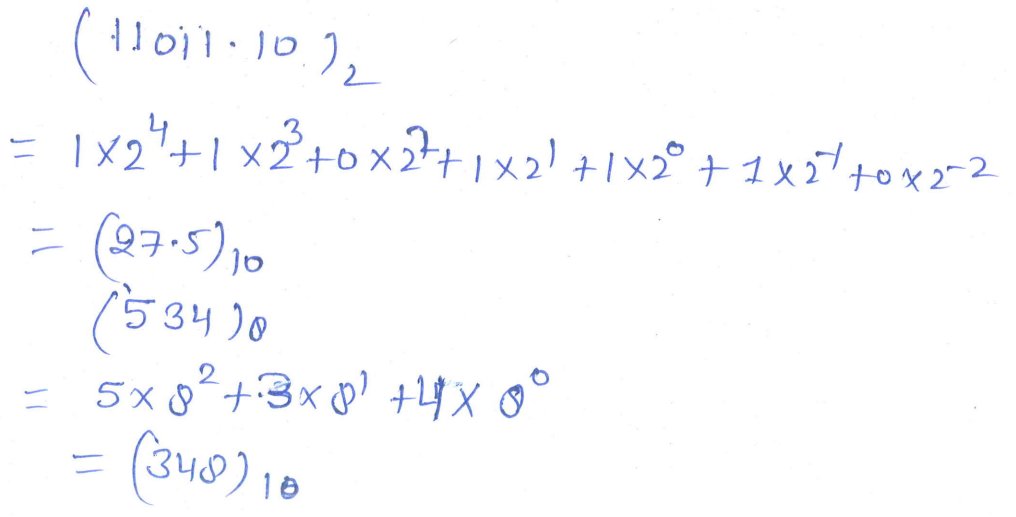 (11011.10)₂
= 1×2⁴+1×2³+0×2²+1×2¹+1×2⁰+1×2⁻¹+0×2⁻²
= (27.5)₁₀
(534)₈
= 5×8²+3×8¹+4×8⁰
= (348)₁₀